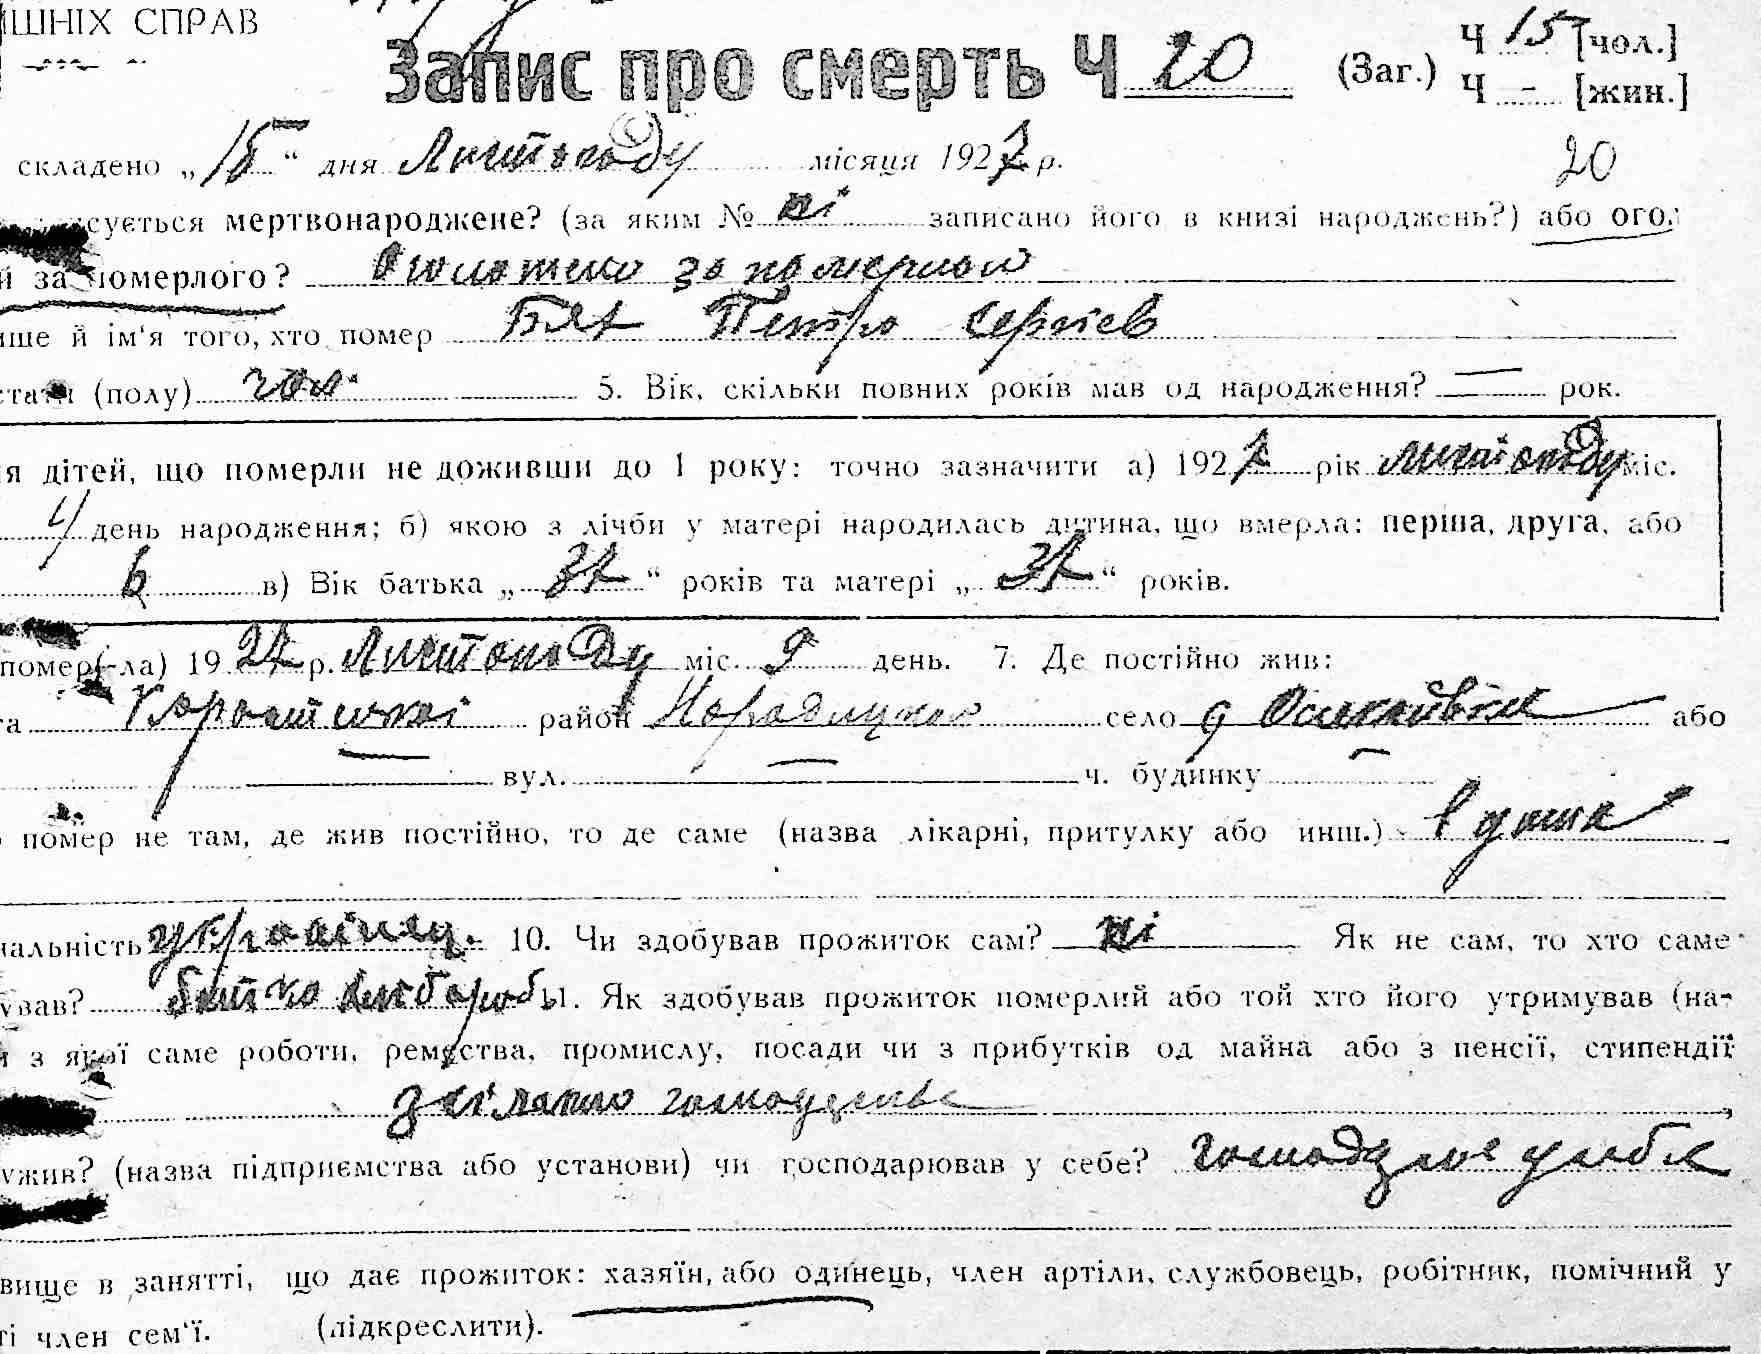 ІШНІХ СПРАВ
Запис про смерть Ч 20 (Заг.) Ч 15 [чол.]
Ч - [жин.]
складено „15“ дня Листопаду місяця 1927 р. 20
сується мертвонароджене? (за яким № ні записано його в книзі народжень?) або ого
й за померлого? Оголошено за померлой
ище й ім'я того, хто помер Петро Сергієв
стати (полу) чол. 5. Вік, скільки повних років мав од народження? — рок.
я дітей, що померли не доживши до 1 року: точно зазначити а) 1927 рік листопаду міс.
4 день народження; б) якою з лічби у матері народилась дитина, що вмерла: перша, друга, або
6 в) Вік батька „37“ років та матері „37“ років.
помер(-ла) 1927 р. Листопаду міс. 9 день. 7. Де постійно жив:
га Коростенські район Народицького село
або
— вул. — ч. будинку —
помер не там, де жив постійно, то де саме (назва лікарні, притулку або инш.) в дома
нальність українец. 10. Чи здобував прожиток сам? ні Як не сам, то хто саме
ував? батько хлібороб 11. Як здобував прожиток померлий або той хто його утримував (на-
и з якої саме роботи, ремества, промислу, посади чи з прибутків од майна або з пенсії, стипендії
з сільського господарства
ужив? (назва підприємства або установи) чи господарював у себе? господарює у себе
вище в занятті, що дає прожиток: хазяїн, або одинець, член артіли, службовець, робітник, помічний у
ті член сем'ї. (підкреслити).